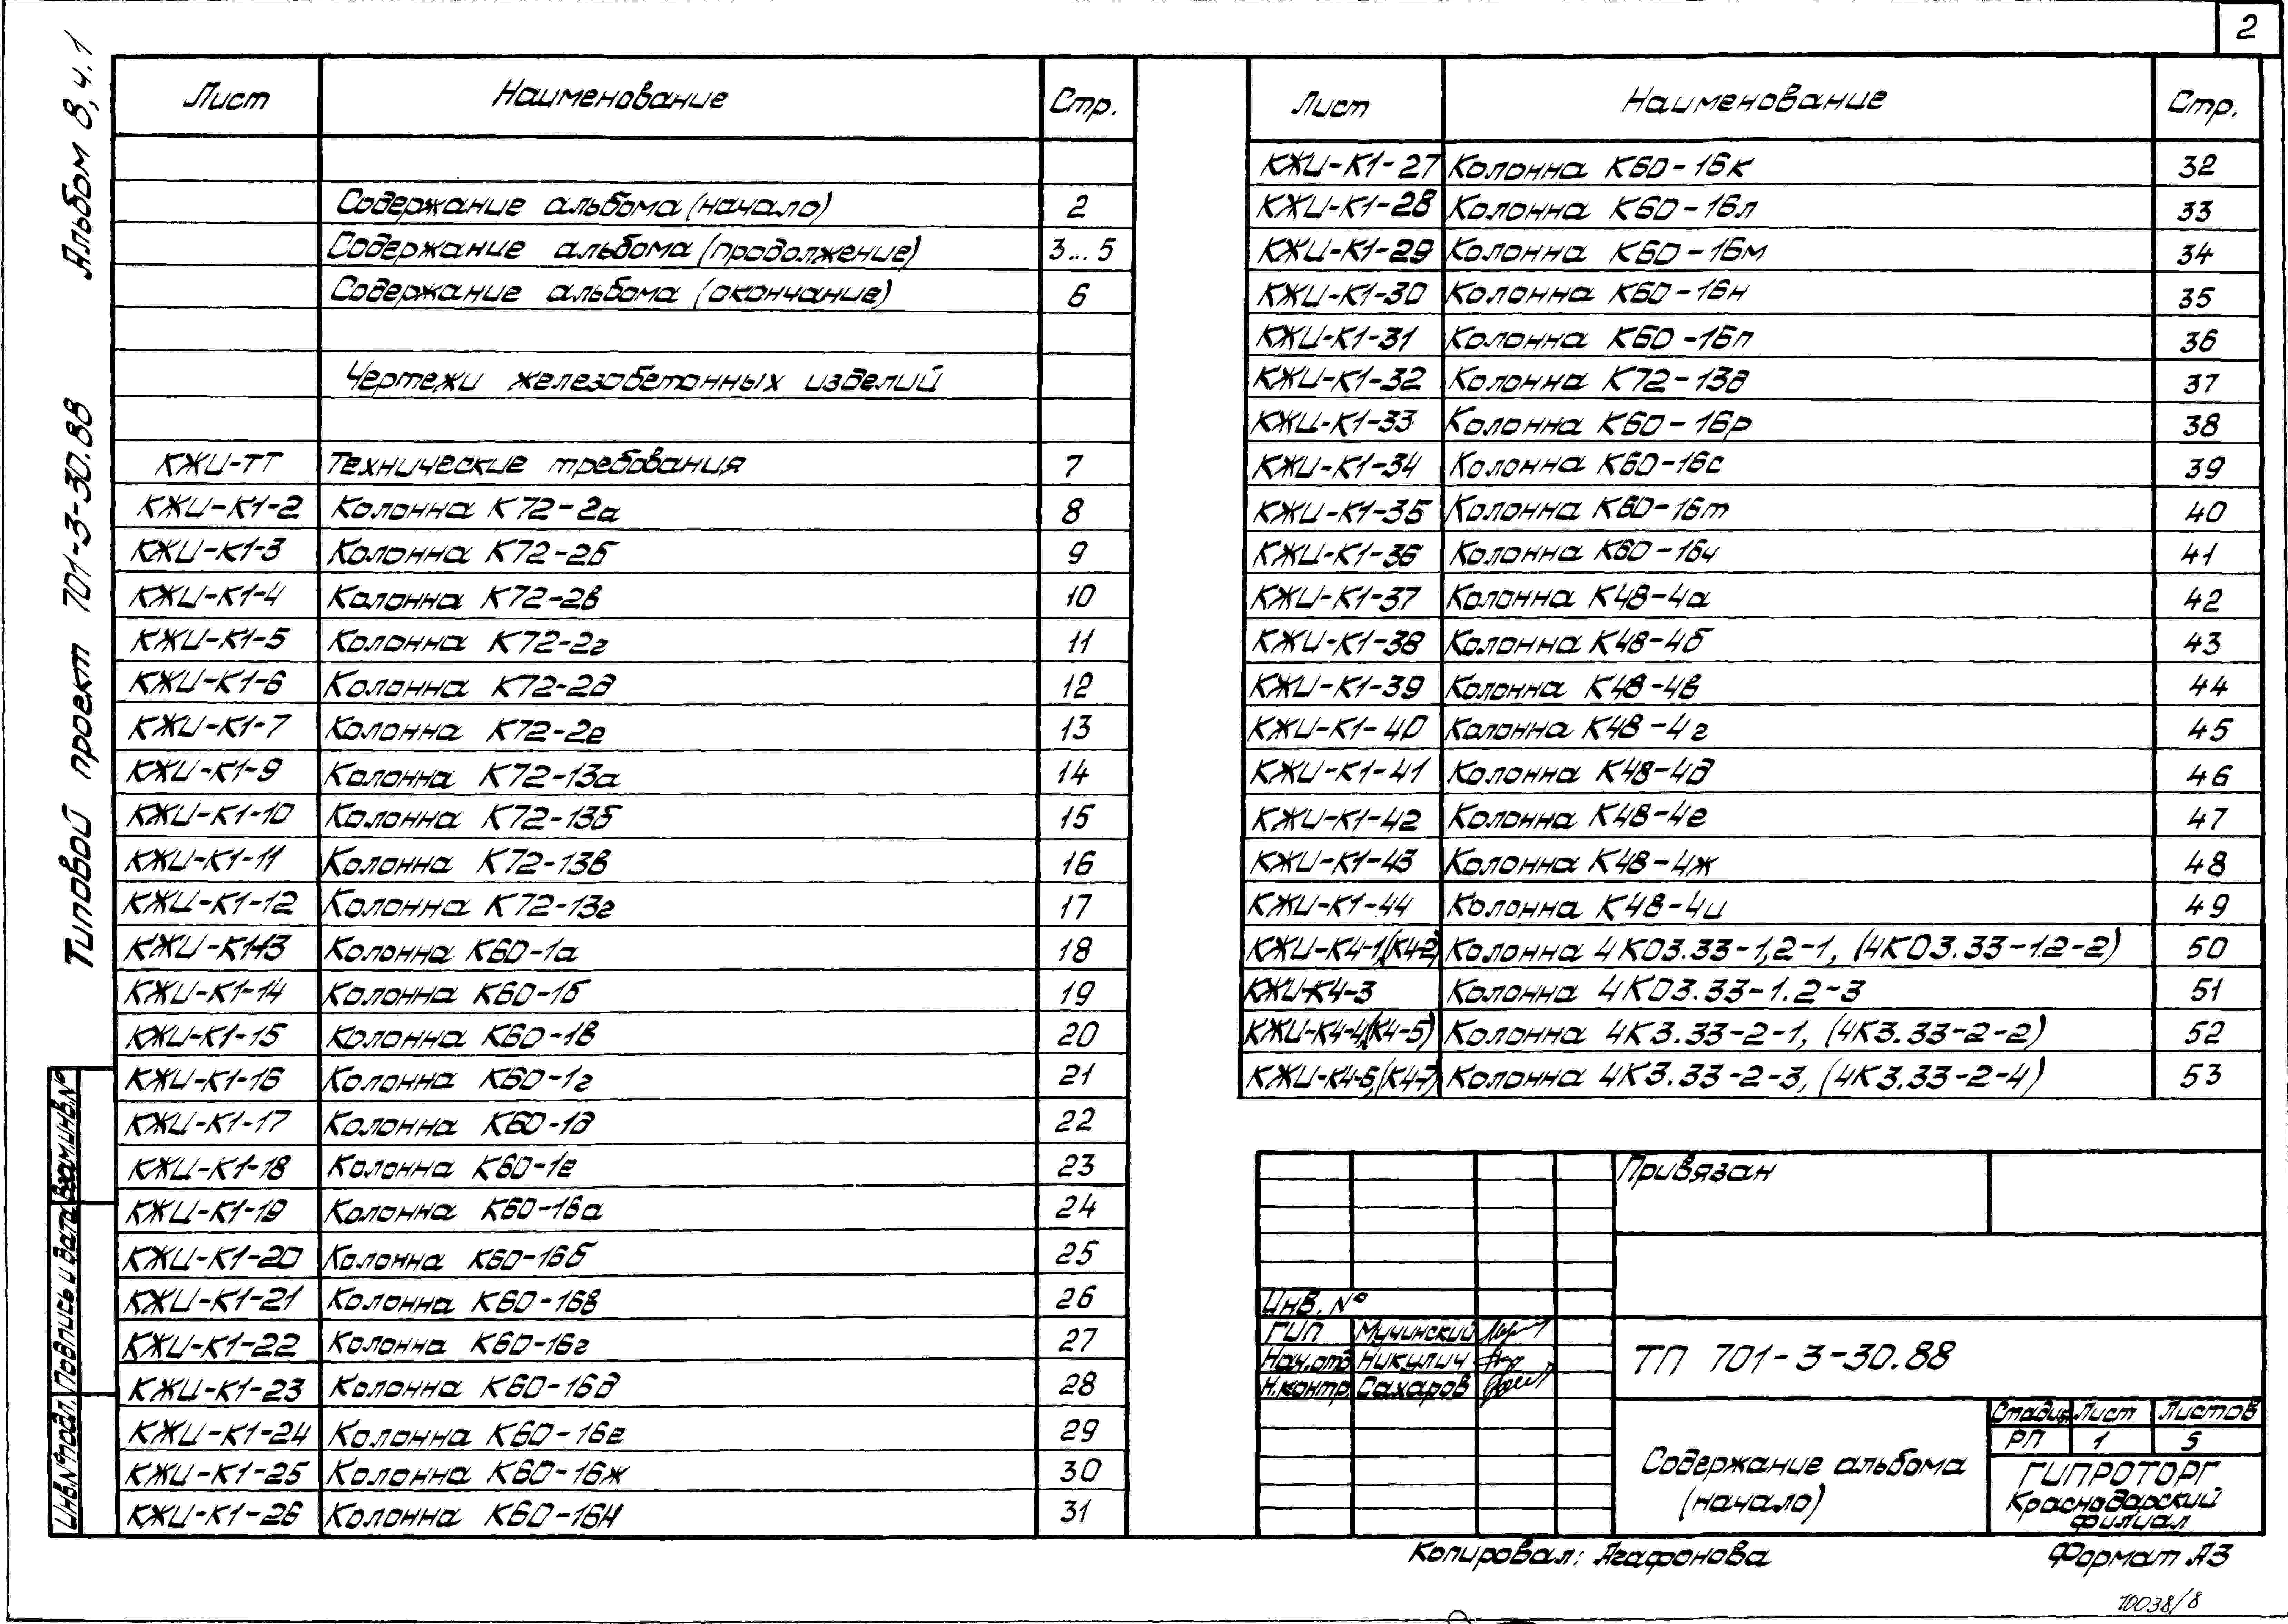 2
Альбом 8, ч.1
Типовой проект 701-3-30.88
Лист Наименование Стр.
Содержание альбома (начало) 2
Содержание альбома (продолжение) 3...5
Содержание альбома (окончание) 6
Чертежи железобетонных изделий
КЖИ-ТТ Технические требования 7
КЖИ-К1-2 Колонна К72-2а 8
КЖИ-К1-3 Колонна К72-2б 9
КЖИ-К1-4 Колонна К72-2в 10
КЖИ-К1-5 Колонна К72-2г 11
КЖИ-К1-6 Колонна К72-2д 12
КЖИ-К1-7 Колонна К72-2е 13
КЖИ-К1-9 Колонна К72-13а 14
КЖИ-К1-10 Колонна К72-13б 15
КЖИ-К1-11 Колонна К72-13в 16
КЖИ-К1-12 Колонна К72-13г 17
КЖИ-К1-13 Колонна К60-1а 18
КЖИ-К1-14 Колонна К60-1б 19
КЖИ-К1-15 Колонна К60-1в 20
КЖИ-К1-16 Колонна К60-1г 21
КЖИ-К1-17 Колонна К60-1д 22
КЖИ-К1-18 Колонна К60-1е 23
КЖИ-К1-19 Колонна К60-16а 24
КЖИ-К1-20 Колонна К60-16б 25
КЖИ-К1-21 Колонна К60-16в 26
КЖИ-К1-22 Колонна К60-16г 27
КЖИ-К1-23 Колонна К60-16д 28
КЖИ-К1-24 Колонна К60-16е 29
КЖИ-К1-25 Колонна К60-16ж 30
КЖИ-К1-26 Колонна К60-16И 31
Лист Наименование Стр.
КЖИ-К1-27 Колонна К60-16к 32
КЖИ-К1-28 Колонна К60-16л 33
КЖИ-К1-29 Колонна К60-16м 34
КЖИ-К1-30 Колонна К60-16н 35
КЖИ-К1-31 Колонна К60-16п 36
КЖИ-К1-32 Колонна К72-13д 37
КЖИ-К1-33 Колонна К60-16р 38
КЖИ-К1-34 Колонна К60-16с 39
КЖИ-К1-35 Колонна К60-16т 40
КЖИ-К1-36 Колонна К60-16ч 41
КЖИ-К1-37 Колонна К48-4а 42
КЖИ-К1-38 Колонна К48-4б 43
КЖИ-К1-39 Колонна К48-4в 44
КЖИ-К1-40 Колонна К48-4г 45
КЖИ-К1-41 Колонна К48-4д 46
КЖИ-К1-42 Колонна К48-4е 47
КЖИ-К1-43 Колонна К48-4ж 48
КЖИ-К1-44 Колонна К48-4и 49
КЖИ-К4-1,(К4-2) Колонна 4К03.33-1,2-1, (4К03.33-1.2-2) 50
КЖИ-К4-3 Колонна 4К03.33-1.2-3 51
КЖИ-К4-4,(К4-5) Колонна 4К3.33-2-1, (4К3.33-2-2) 52
КЖИ-К4-6,(К4-7) Колонна 4К3.33-2-3, (4К3.33-2-4) 53
Взам.инв.N°
Подпись и дата
Инв.N°подл.
Привязан
Инв. N°
ГИП Мучинский
Нач.отд Никулич
Н.контр. Сахаров
ТП 701-3-30.88
Содержание альбома
(начало)
Стадия Лист Листов
РП 1 5
ГИПРОТОРГ
Краснодарский
филиал
Копировал: Агафонова
Формат А3
10038/8